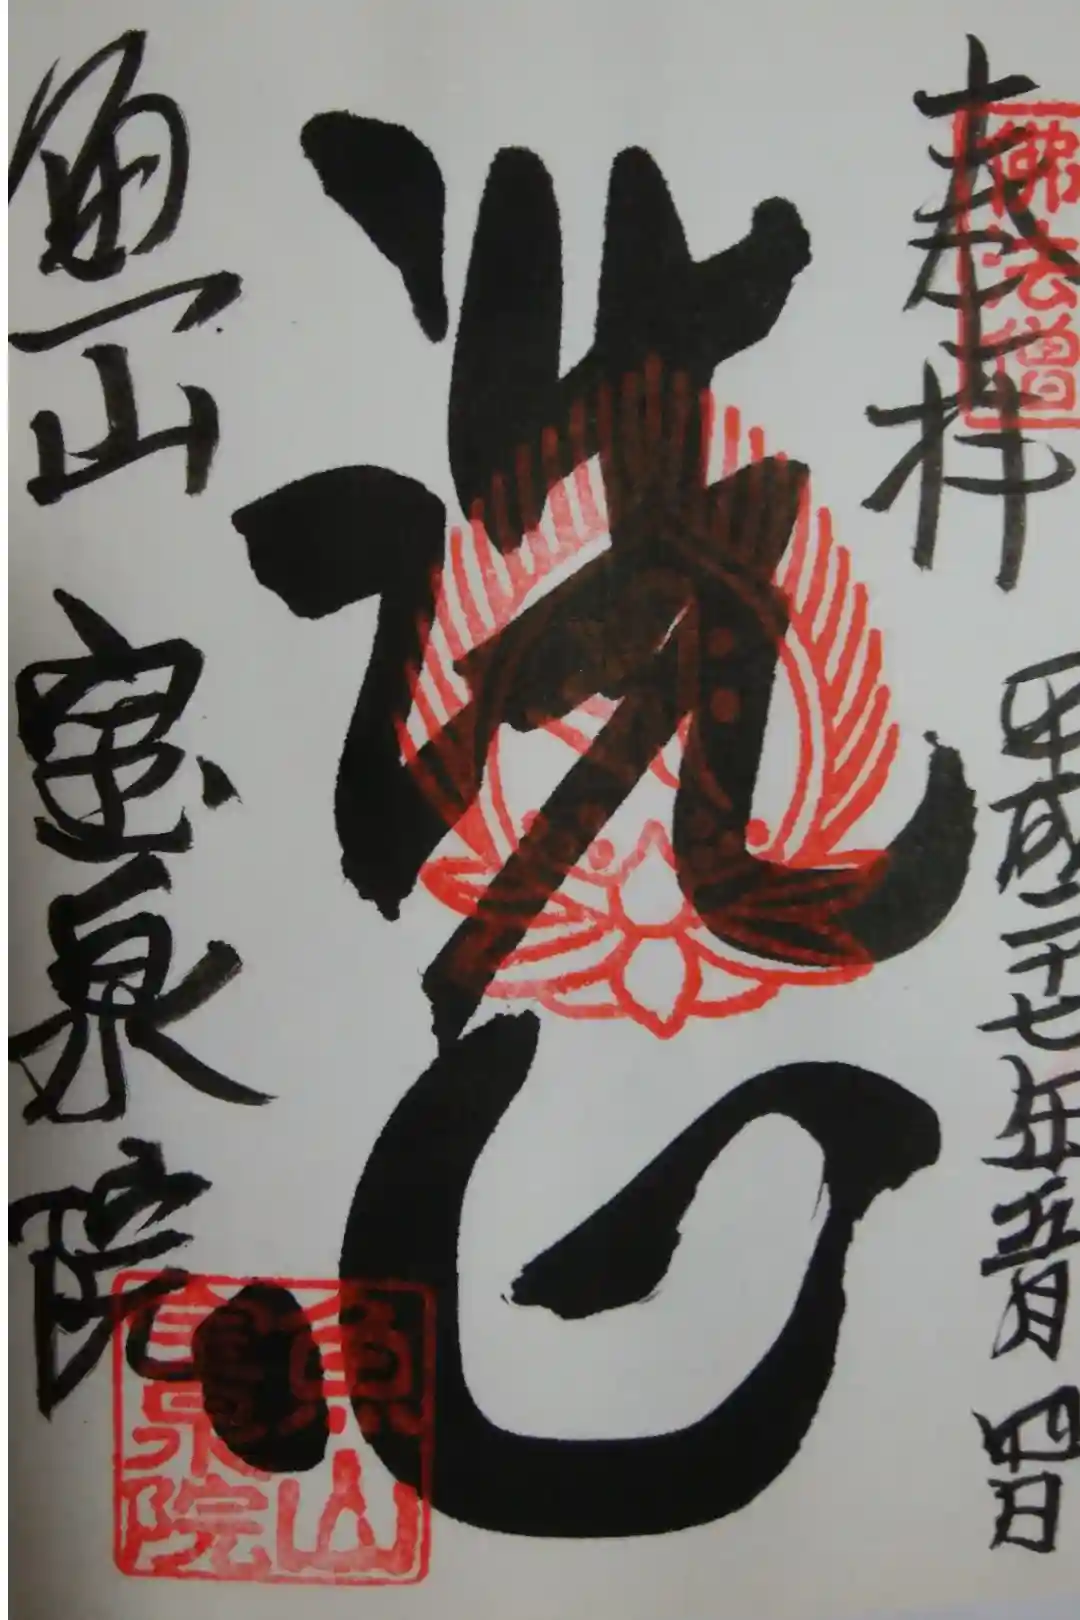 奉拝
平成二十七年五月四日
佛法僧
洗心
魚山
宝泉院
魚山
寳泉院